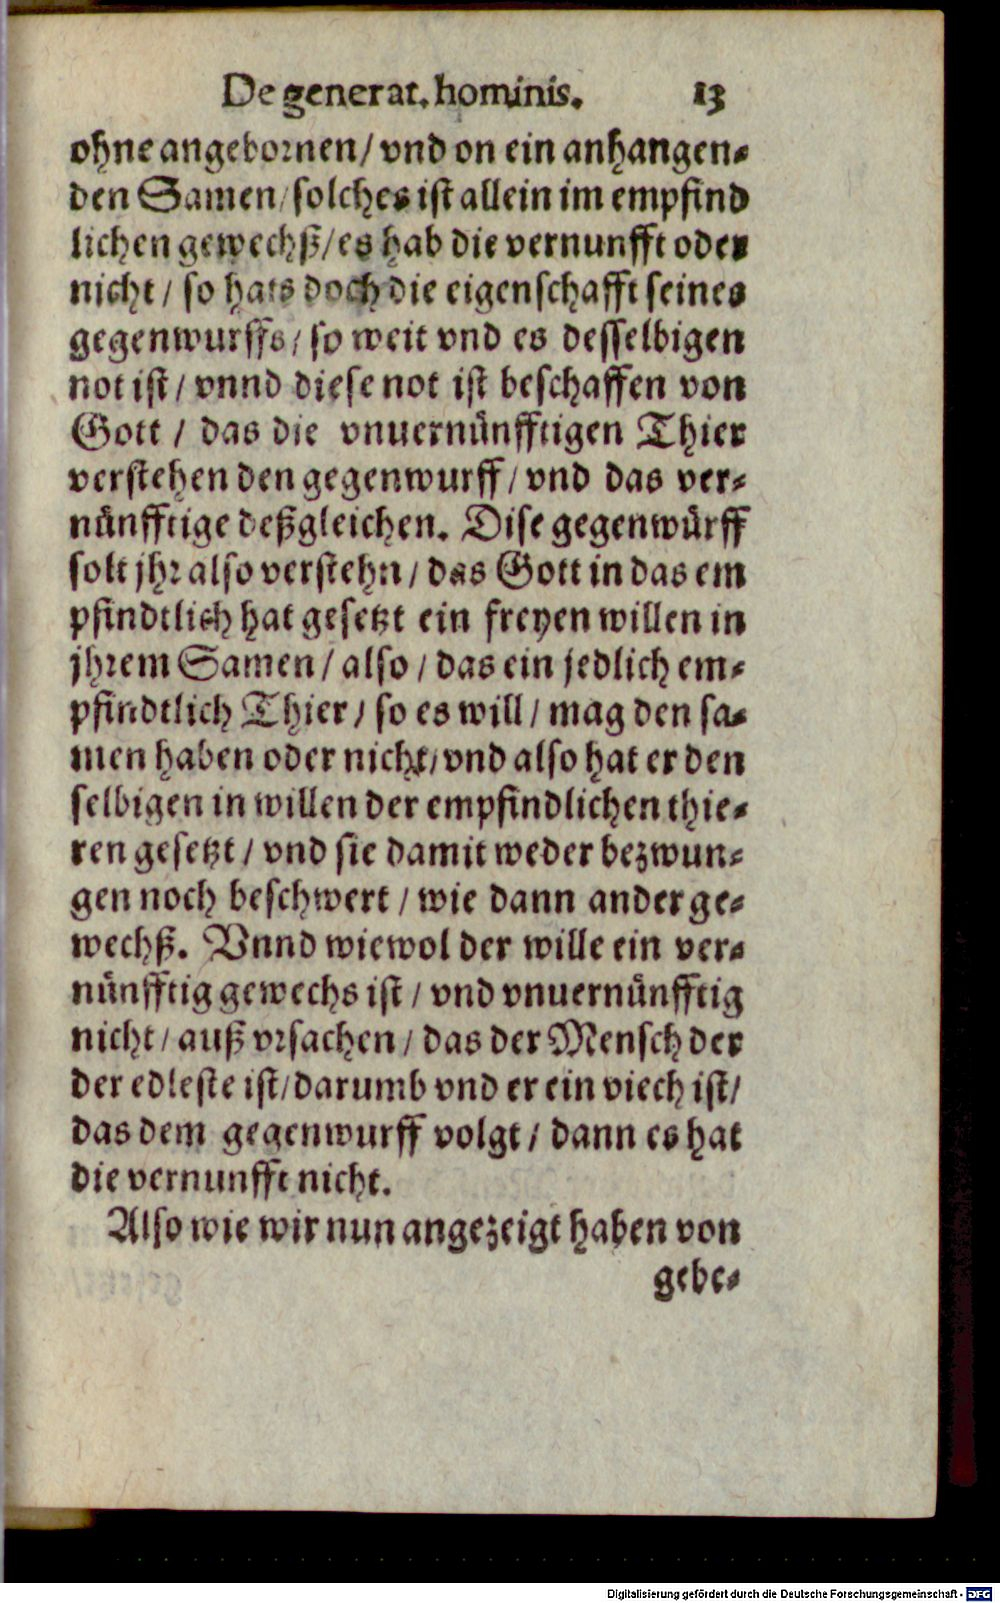 De generat. hominis. 13
ohne angebornen / vnd on ein anhangen-
den Samen / solches ist allein im empfind
lichen gewechß / es hab die vernunfft oder
nicht / so hats doch die eigenschafft seines
gegenwurffs / so weit vnd es desselbigen
not ist / vnnd diese not ist beschaffen von
Gott / das die vnuernünfftigen Thier
verstehen den gegenwurff / vnd das ver-
nünfftige deßgleichen. Dise gegenwürff
solt jhr also verstehn / das Gott in das em
pfindtlich hat gesetzt ein freyen willen in
jhrem Samen / also / das ein jedlich em-
pfindtlich Thier / so es will / mag den sa-
men haben oder nicht / vnd also hat er den
selbigen in willen der empfindlichen thie-
ren gesetzt / vnd sie damit weder bezwun-
gen noch beschwert / wie dann ander ge-
wechß. Vnnd wiewol der wille ein ver-
nünfftig gewechs ist / vnd vnuernünfftig
nicht / auß vrsachen / das der Mensch der
der edleste ist / darumb vnd er ein viech ist /
das dem gegenwurff volgt / dann es hat
die vernunfft nicht.
Also wie wir nun angezeigt haben von
gebe-
Digitalisierung gefördert durch die Deutsche Forschungsgemeinschaft - DFG